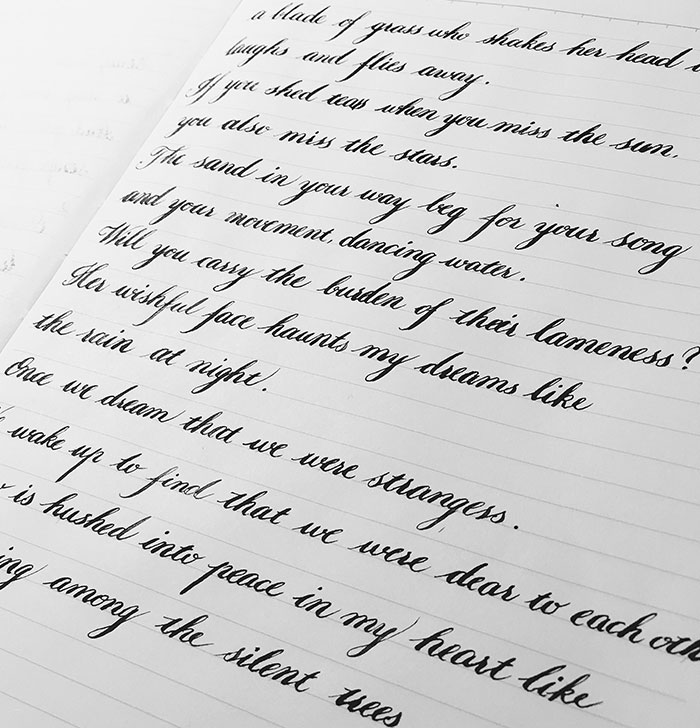 a blade of grass who shakes her head
laughs and flies away.
If you shed tears when you miss the sun.
you also miss the stars.
The sand in your way beg for your song
and your movement, dancing water.
Will you carry the burden of their lameness?
Her wishful face haunts my dreams like
the rain at night.
Once we dream that we were strangers.
wake up to find that we were dear to each oth
is hushed into peace in my heart like
ing among the silent trees